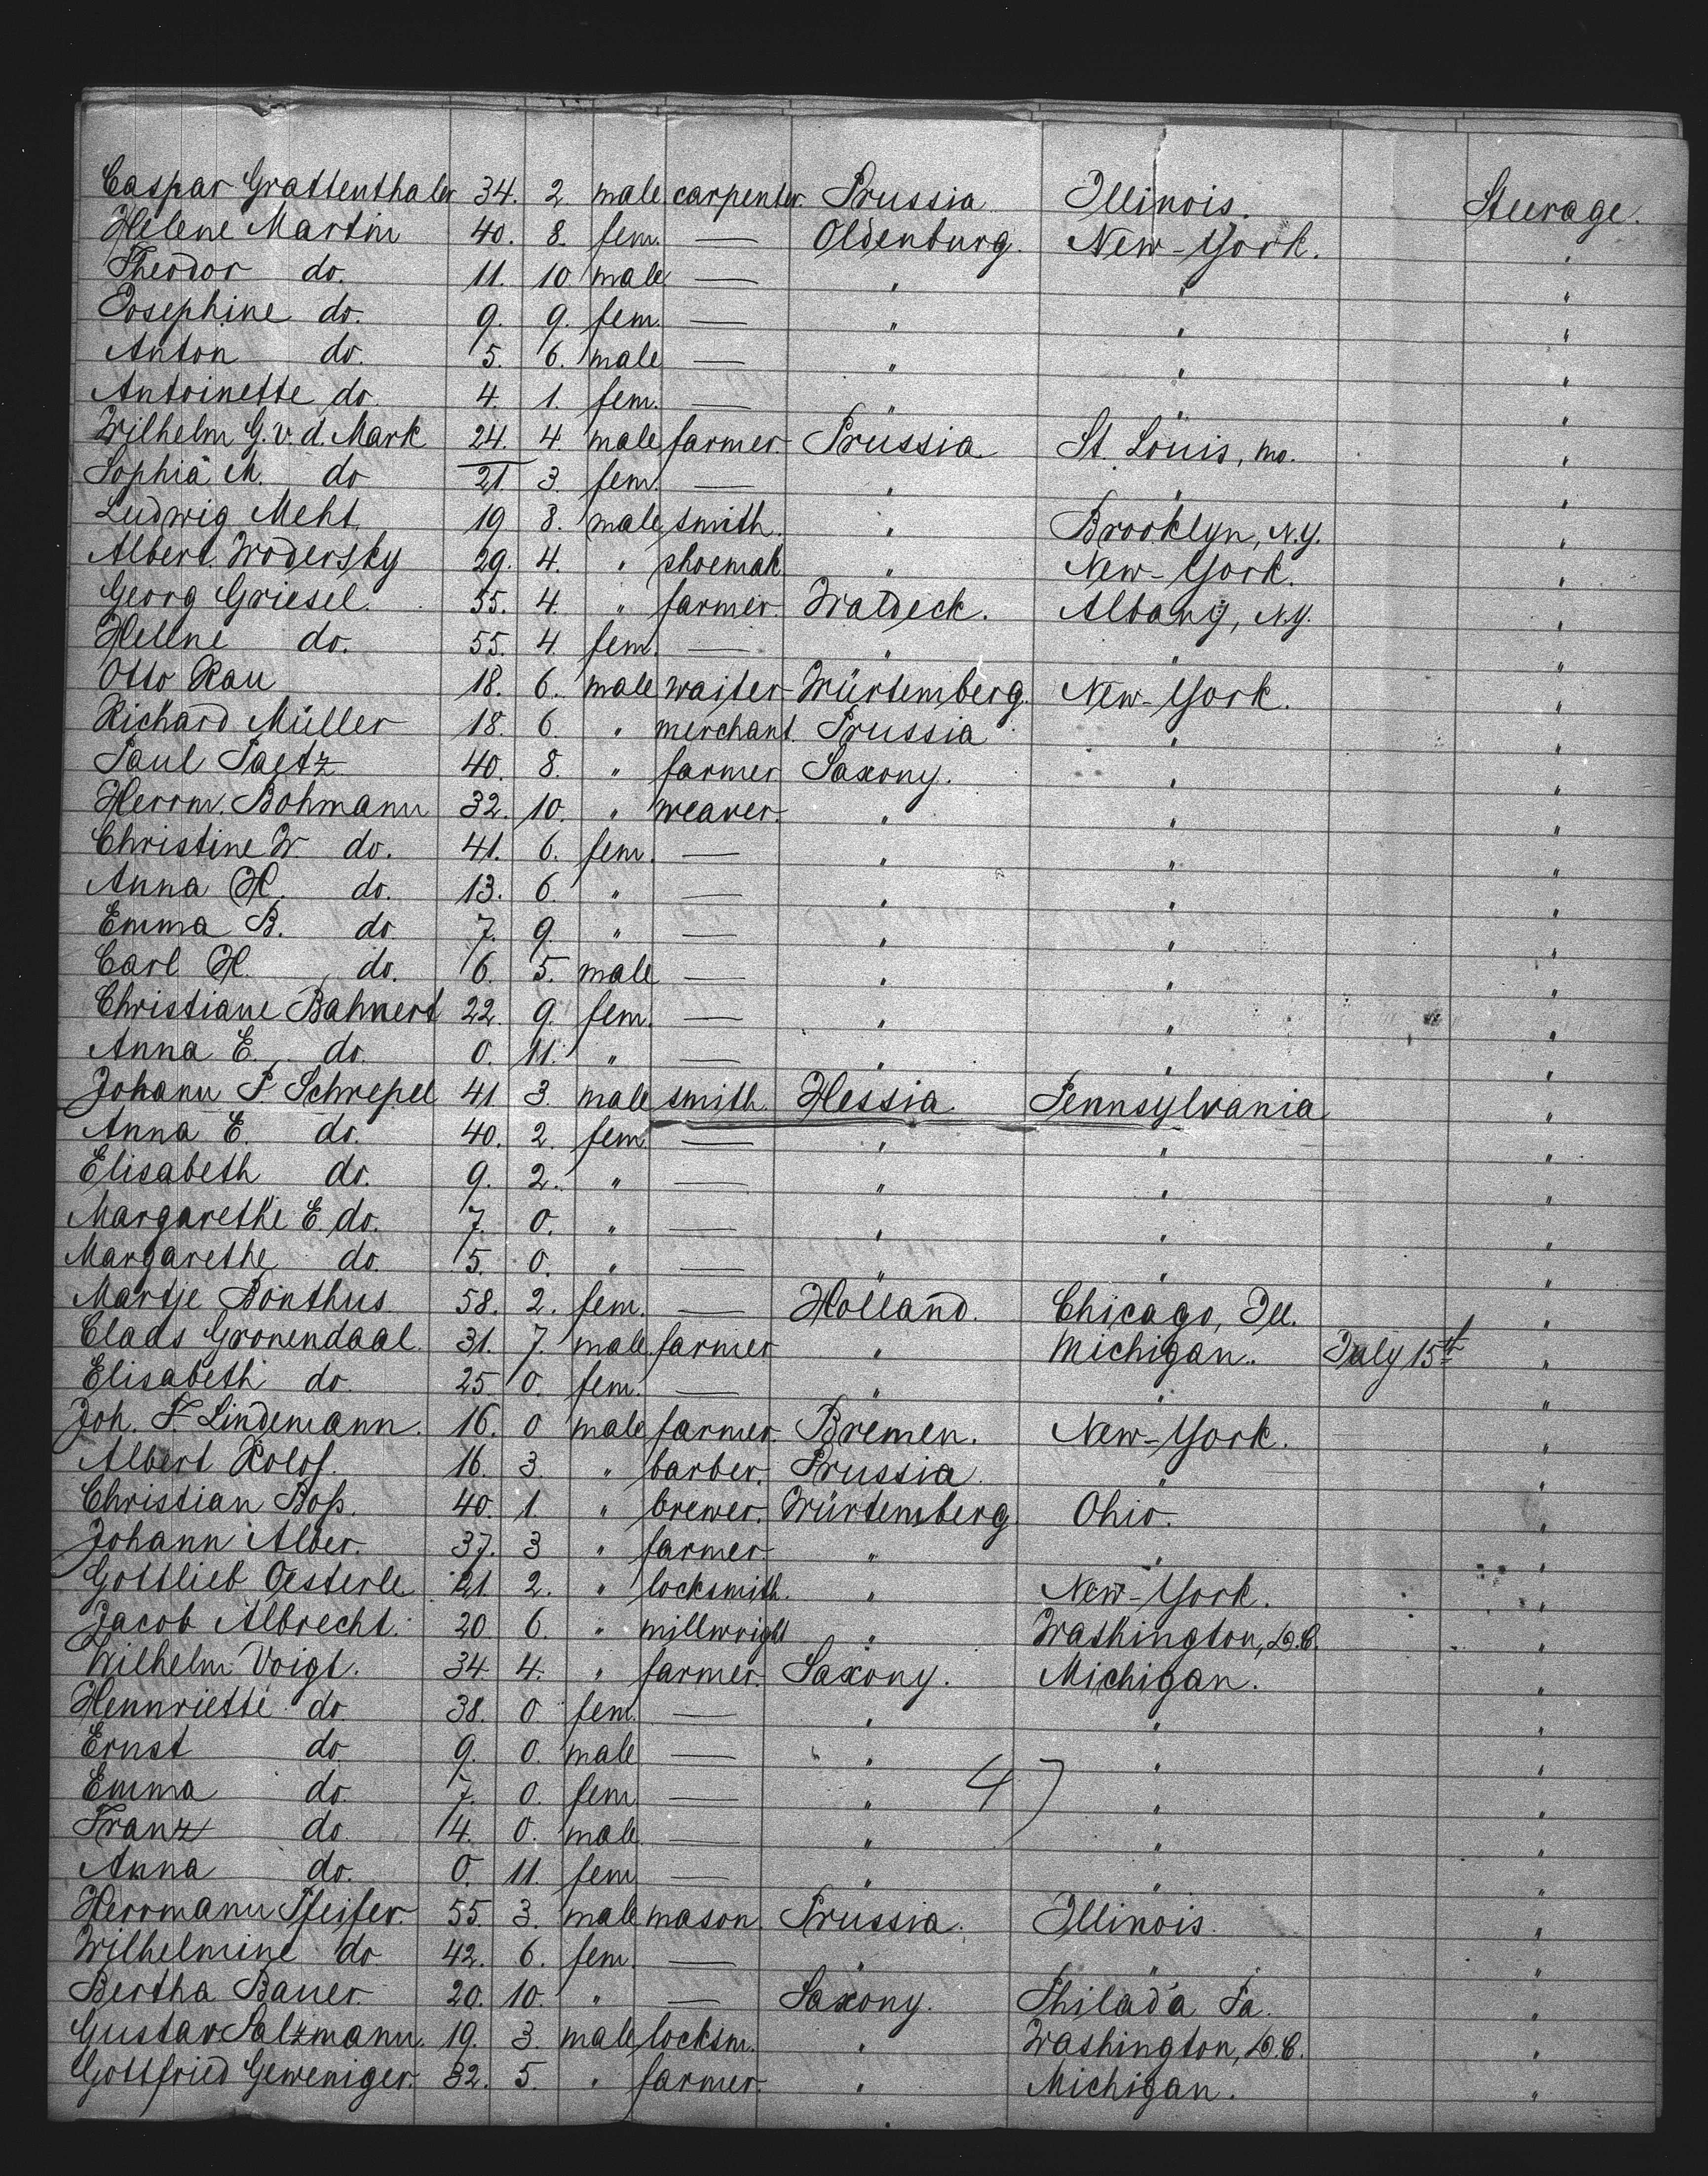 Caspar Grattenthaler 34. 2. male carpenter. Prussia Illinois. Steerage.
Helene Martin 40. 8. fem. — Oldenburg. New-York. "
Theodor do. 11. 10. male — " " "
Josephine do. 9. 9. fem. — " " "
Anton do. 5. 6. male — " " "
Antoinette do. 4. 1. fem. — " " "
Wilhelm G. v. d. Mark 24. 4. male farmer. Prussia. St. Louis, Mo. "
Sophia M. do 21. 3. fem. — " " "
Ludwig Meht 19 8. male smith. " Brooklyn, N.Y. "
Albert Wodersky 29. 4. " shoemak. " New-York. "
Georg Griesel. 55. 4. " farmer. Waldeck. Albany, N.Y. "
Helene do. 55. 4. fem. — " " "
Otto Rau 18. 6. male waiter Würtemberg. New-York. "
Richard Müller 18. 6. " merchant. Prussia " "
Paul Paetz 40. 8. " farmer Saxony. " "
Herrm. Bohmann 32. 10. " weaver. " " "
Christine W. do. 41. 6. fem. — " " "
Anna H. do. 13. 6. " — " " "
Emma B. do. 7. 9. " — " " "
Carl H. do. 6. 5. male — " " "
Christiane Bahnert 22. 9. fem. — " " "
Anna E. do. 0. 11. " — " " "
Johann P. Schrepel 41. 3. male smith. Hessia. Pennsylvania "
Anna E. do. 40. 2. fem. — " " "
Elisabeth do. 9. 2. " — " " "
Margarethe E. do. 7. 0. " — " " "
Margarethe do. 5. 0. " — " " "
Martje Bonthus 58. 2. fem. — Holland. Chicago, Ill. "
Claas Gronendaal. 31. 7. male farmer " Michigan. July 15th "
Elisabeth do. 25. 0. fem. — " " "
Joh. F. Lindemann. 16. 0 male farmer. Bremen. New-York. "
Albert Kolof. 16. 3. " barber. Prussia " "
Christian Boß. 40. 1. " brewer. Würtemberg Ohio. "
Johann Alber. 37. 3 " farmer " " "
Gottlieb Oesterle 21 2. " locksmith. " New-York. "
Jacob Albrecht. 20. 6. " millwright " Washington, D.C. "
Wilhelm Voigt. 34 4. " farmer. Saxony. Michigan. "
Hennriette do. 38. 0. fem. — " " "
Ernst do. 9. 0. male — " " "
Emma do. 7. 0. fem — " 4) " "
Franz do. 4. 0. male — " " "
Anna do. 0. 11. fem — " " "
Herrmann Pfeifer. 55. 3. male mason. Prussia. Illinois. "
Wilhelmine do 42. 6. fem. — " " "
Bertha Bauer. 20. 10. " — Saxony. Philad'a Pa. "
Gustav Salzmann. 19. 3. male locksm. " Washington, D.C. "
Gottfried Geweniger. 32. 5. " farmer. " Michigan. "